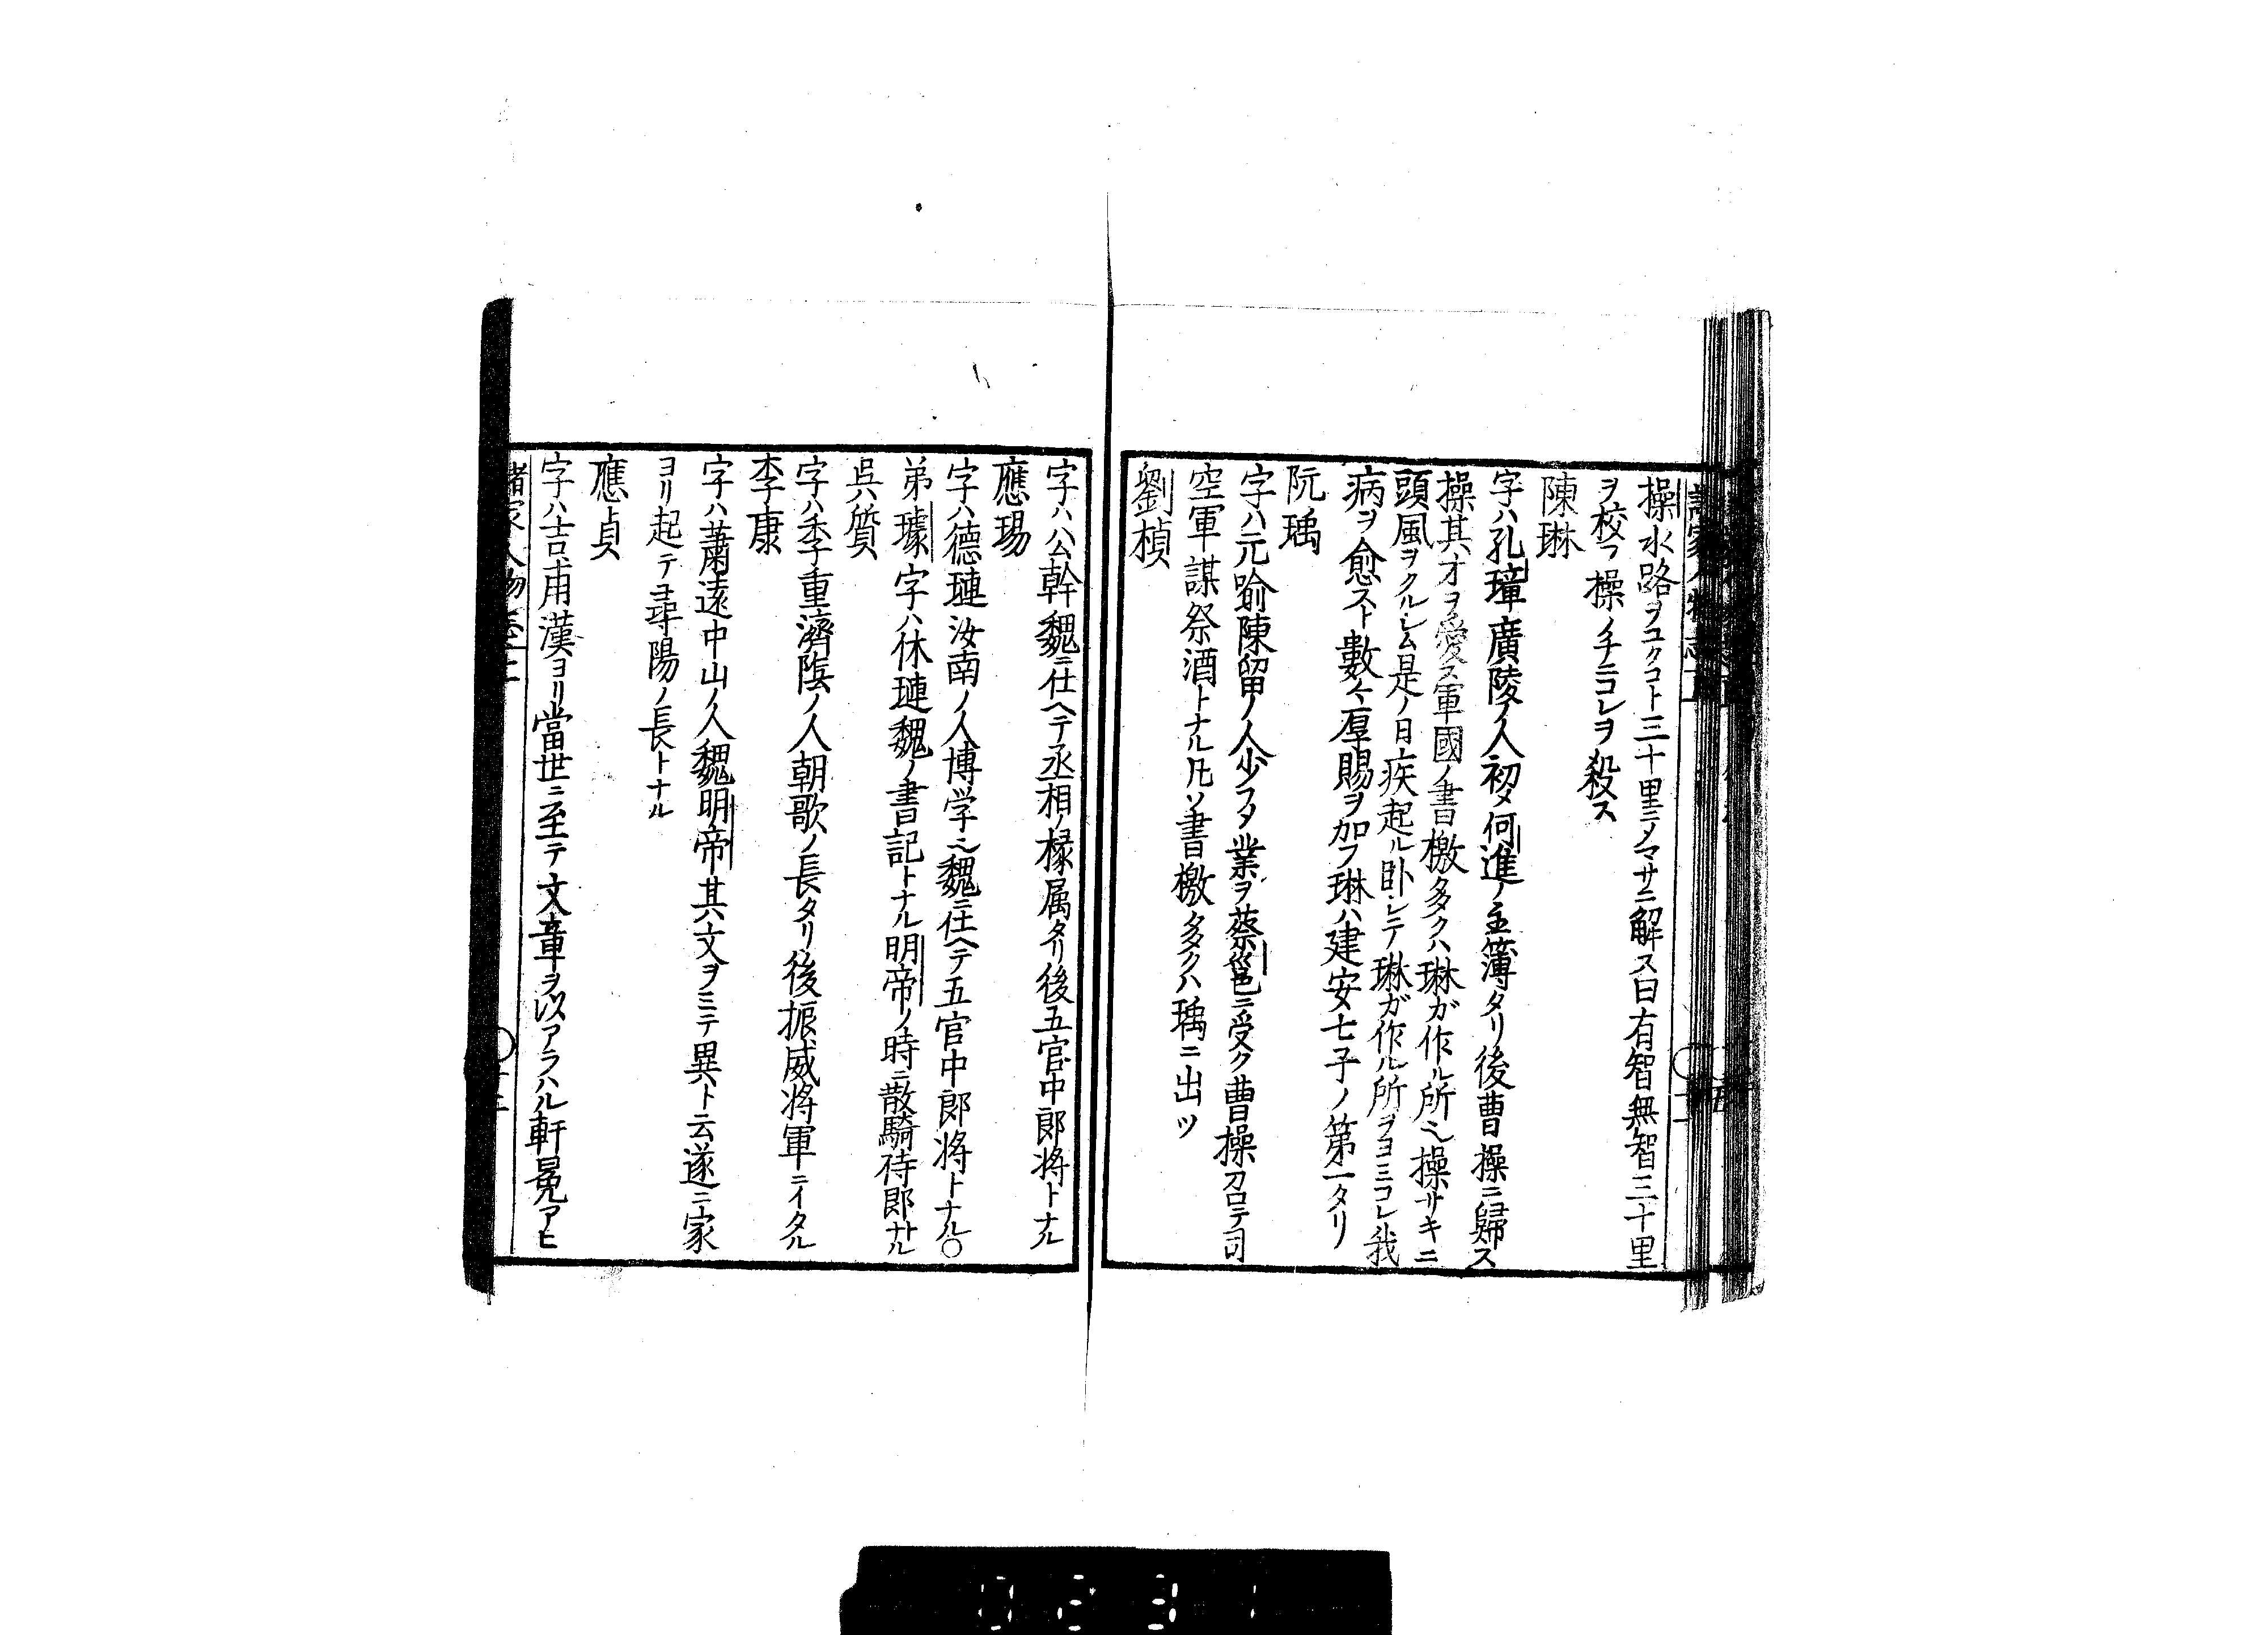 操水路ヲユクコト三十里ニノマサニ解ス曰有智無智三十里
ヲ校フ操ノ手ニコレヲ殺ス
陳琳
字ハ孔璋廣陵ノ人初タ何進ノ主簿タリ後曹操ニ歸ス
操其才ヲ愛ス軍國ノ書檄多クハ琳ガ作ル所ヘ操サキニ
頭風ヲクルシム是ノ日疾起ル卧シテ琳ガ作ル所ヲヨミコレ我
病ヲ愈スト數々厚賜ヲ加フ琳ハ建安七子ノ第一タリ
阮瑀
字ハ元喻陳留ノ人少フタ業ヲ蔡邕ニ受ク曹操召テ司
空軍謀祭酒トナル凡ソ書檄多クハ瑀ニ出ツ
劉楨
字ハ公幹魏ニ仕ヘテ丞相ノ椽属タリ後五官中郎将トナル
應瑒
字ハ德璉汝南ノ人博学ニ魏ニ仕ヘテ五官中郎将トナル〇
弟璩字ハ休璉魏ノ書記トナル明帝ノ時ニ散騎侍郎ナル
呉質
字ハ季重濟陰ノ人朝歌ノ長タリ後振威将軍ニイタル
李康
字ハ蕭遠中山ノ人魏明帝其文ヲミテ異ト云遂ニ家
ヨリ起テ尋陽ノ長トナル
應貞
字ハ吉甫漢ヨリ當世ニ至テ文章ヲ以アラハル軒冕アヒ
諸家人物志